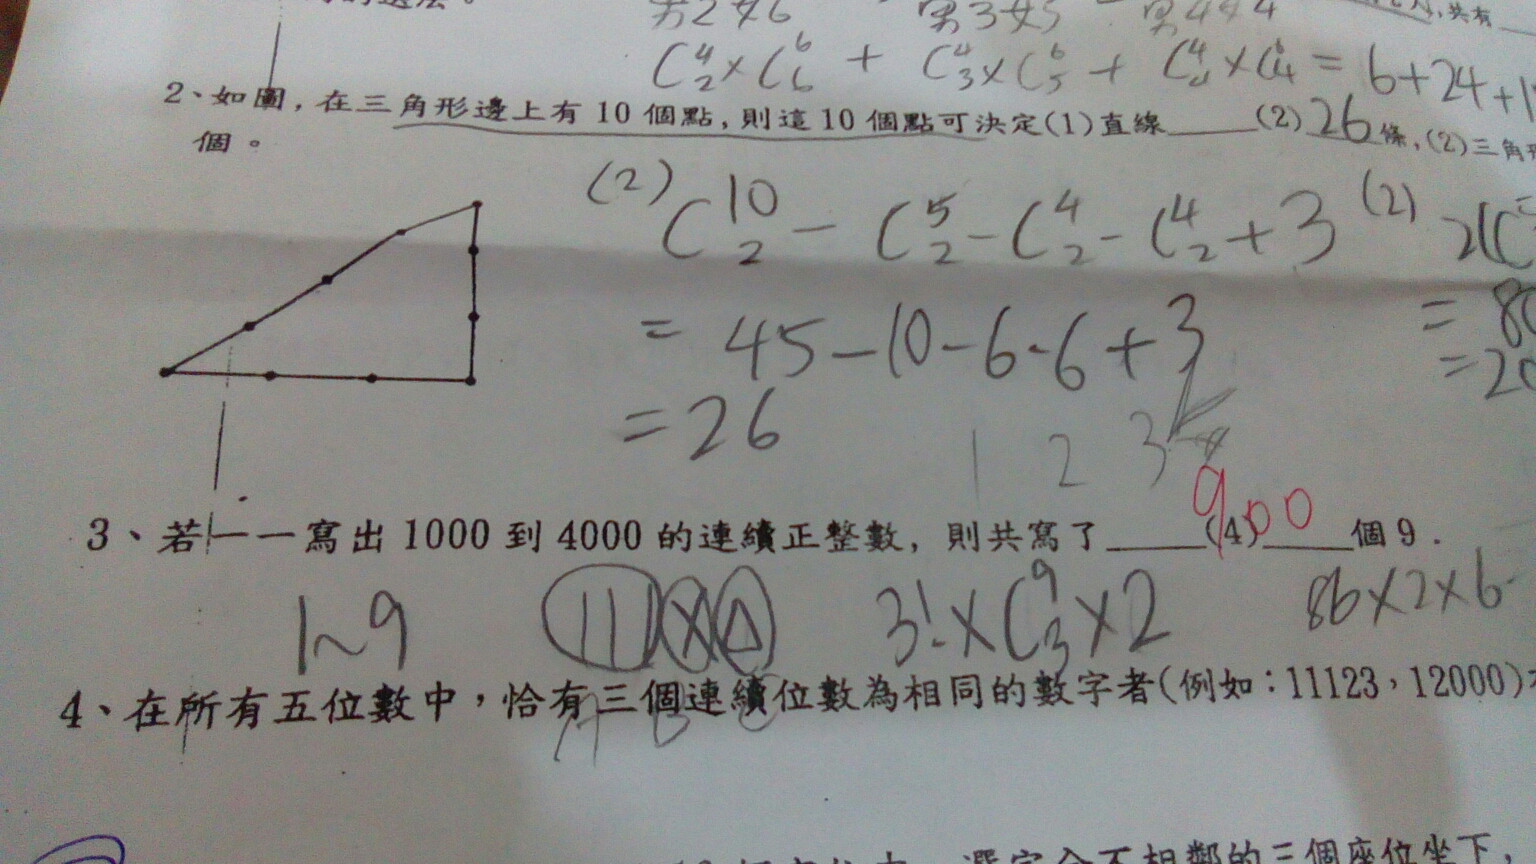 男2女6 男3女5 男4女4 共有
C⁴₂×C⁶₆ + C⁴₃×C⁶₅ + C⁴₄×C⁶₄ = 6+24+1
2、如圖，在三角形邊上有 10 個點，則這 10 個點可決定(1)直線____(2)26條，(2)三角形
個。
(2) C¹⁰₂ - C⁵₂ - C⁴₂ - C⁴₂ + 3 (2)
= 45-10-6-6+3 = 8
= 26 = 20
1 2 3
3、若一一寫出 1000 到 4000 的連續正整數，則共寫了____(4)____個 9．
900
1~9 111 × △ 3!×C⁹₃×2 86×2×6
4、在所有五位數中，恰有三個連續位數為相同的數字者(例如：11123，12000)
不相鄰的三個座位坐下，